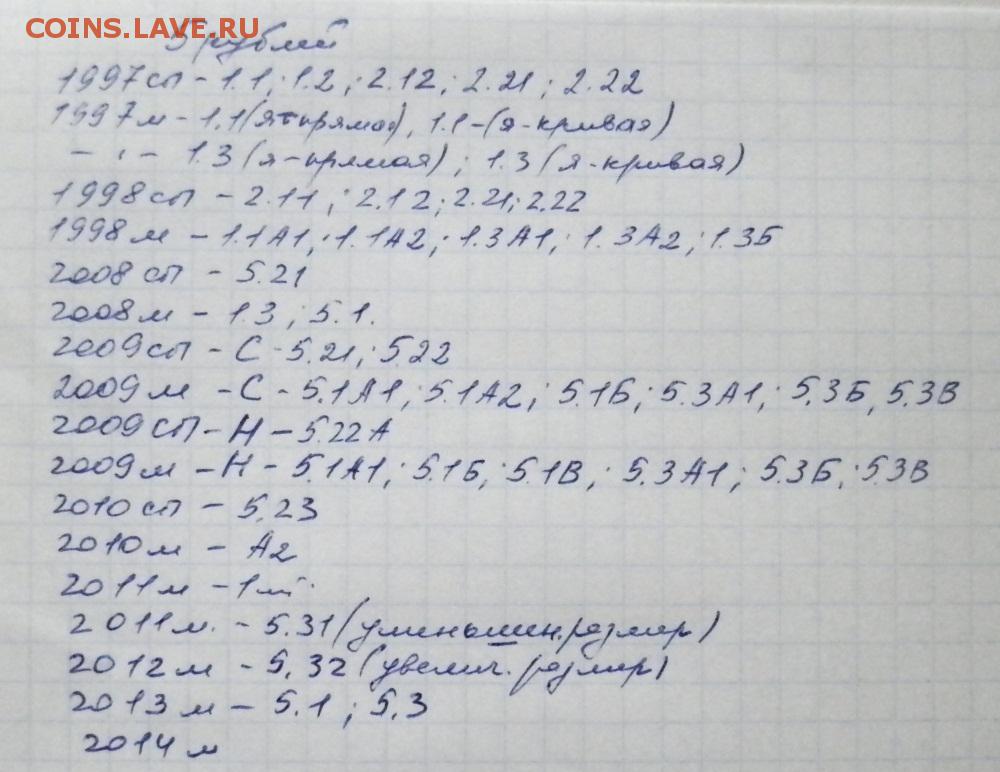 COINS.LAVE.RU
5 рублей
1997сп - 1.1; 1.2; 2.12; 2.21; 2.22
1997м - 1.1(я-прямая), 1.1-(я-кривая)
- ,, - 1.3 (я-прямая); 1.3 (я-кривая)
1998сп - 2.11; 2.12; 2.21; 2.22
1998м - 1.1А1; 1.1А2; 1.3А1; 1.3А2; 1.3Б
2008сп - 5.21
2008м - 1.3; 5.1.
2009сп - С - 5.21; 5.22
2009м - С - 5.1А1; 5.1А2; 5.1Б; 5.3А1; 5.3Б, 5.3В
2009сп - Н - 5.22А
2009м - Н - 5.1А1; 5.1Б; 5.1В; 5.3А1; 5.3Б; 5.3В
2010сп - 5.23
2010м - А2
2011м - 1шт.
2011м. - 5.31 (уменьшен.размер)
2012м - 5.32 (увелич. размер)
2013м - 5.1; 5.3
2014м